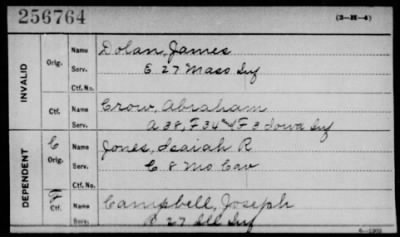 256764 (3-M-4)
INVALID
Orig. Name Dolan, James
Serv. E 27 Mass Inf
Ctf. No.
Ctf. Name Crow, Abraham
Serv. A 38, F 34 & F 3 Iowa Inf
DEPENDENT
C Orig. Name Jones, Isaiah R
Serv. C 8 Mo Cav
Ctf. No.
Ctf. Name Campbell, Joseph
Serv. 27 Ill Inf